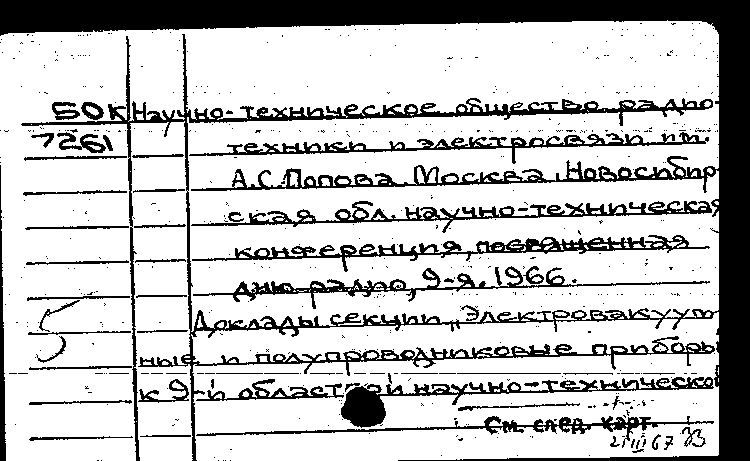 50К Научно-техническое общество радио-
7261 техники и электросвязи им.
А.С.Попова. Москва. Новосибир-
ская обл. научно-техническая
конференция, посвященная
дню радио, 9-я. 1966.
5 Доклады секции „Электровакуум-
ные и полупроводниковые приборы
к 9-й областной научно-технической
См. след. карт.
21 III 67